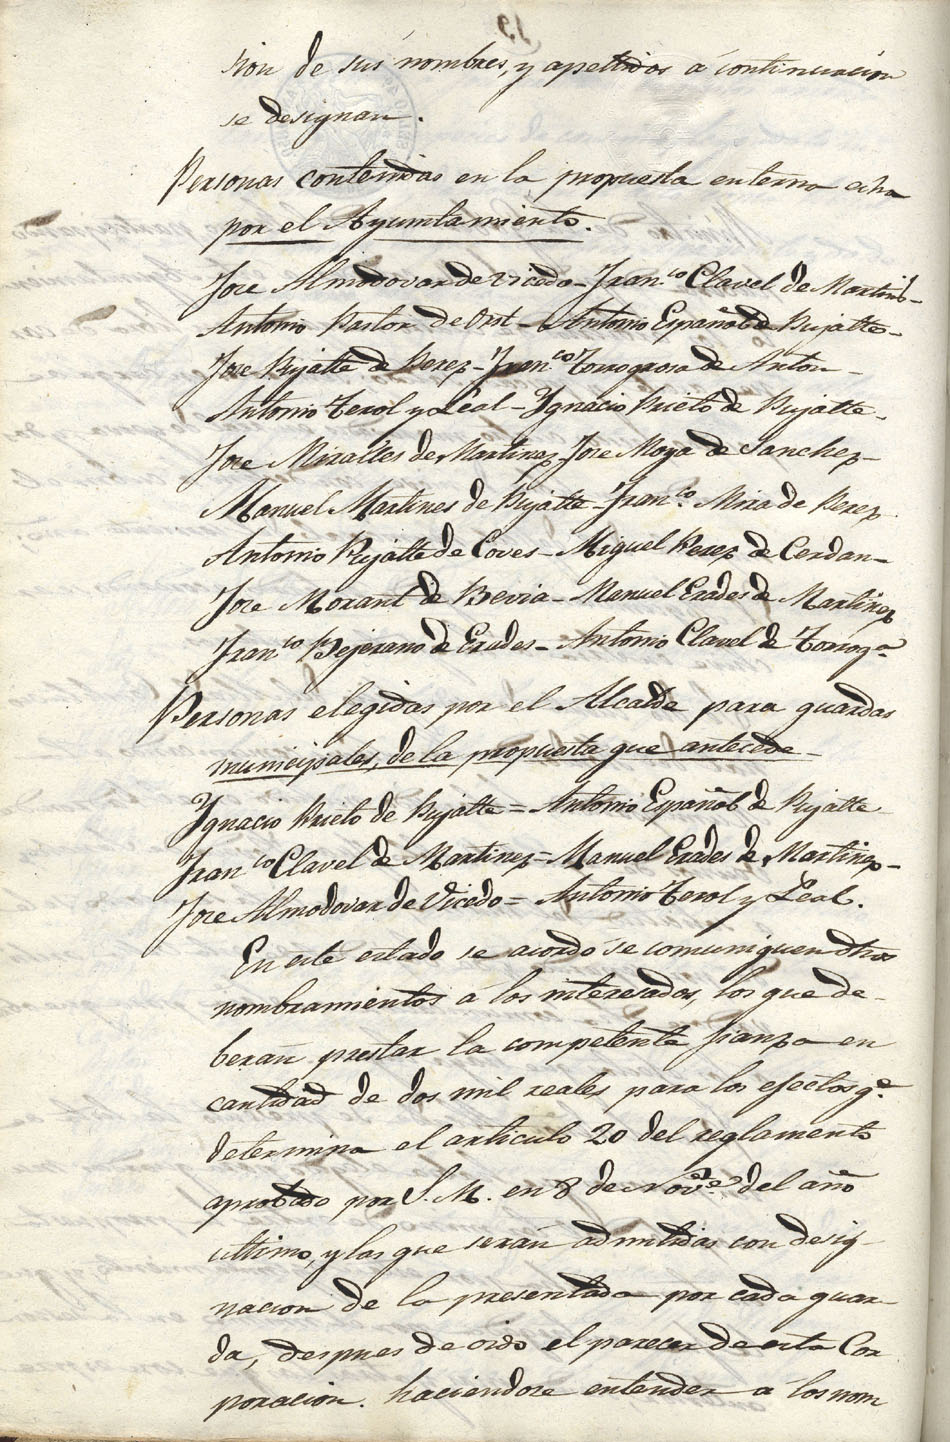 sion de sus nombres, y apellidos á continuacion
se designan.
Personas contenidas en la propuesta enterna echa
por el Ayuntamiento.
Jose Almodovar de Vicedo - Fran.co Clavel de Martins -
Antonio Pastor de Orst - Antonio Español de Rijatte -
Jose Rijatte de Perez - Fran.co Torrogrosa de Anton -
Antonio Terol y Leal - Ygnacio Prieto de Rijatte -
Jose Miralles de Martinez Jose Moya de Sanchez -
Manuel Martines de Rijatte - Fran.co Mira de Perez
Antonio Rijatte de Coves - Miguel Perez de Cerdan -
Jose Morant de Bevia - Manuel Erades de Martinez
Fran.co Bejerano de Erades - Antonio Clavel de Torrog.a
Personas elegidas por el Alcalde para guardas
municipales, de la propuesta que antecede -
Ygnacio Prieto de Rijatte = Antonio Español de Rijatte
Fran.co Clavel de Martinez = Manuel Erades de Martinez -
Jose Almodovar de Vicedo = Antonio Terol y Leal.
En este estado se acordo se comuniquen dhos
nombramientos a los interesados, los que de-
beran prestar la competente fianza en
cantidad de dos mil reales para los efectos q.e
determina el articulo 20 del reglamento
aprobado por S. M. en 8 de Nov.e del año
ultimo, y las que serán admitidas con desig-
nacion de la presentada por cada guar-
da, despues de oido el parecer de esta Cor
poracion. haciendose entender a los nom